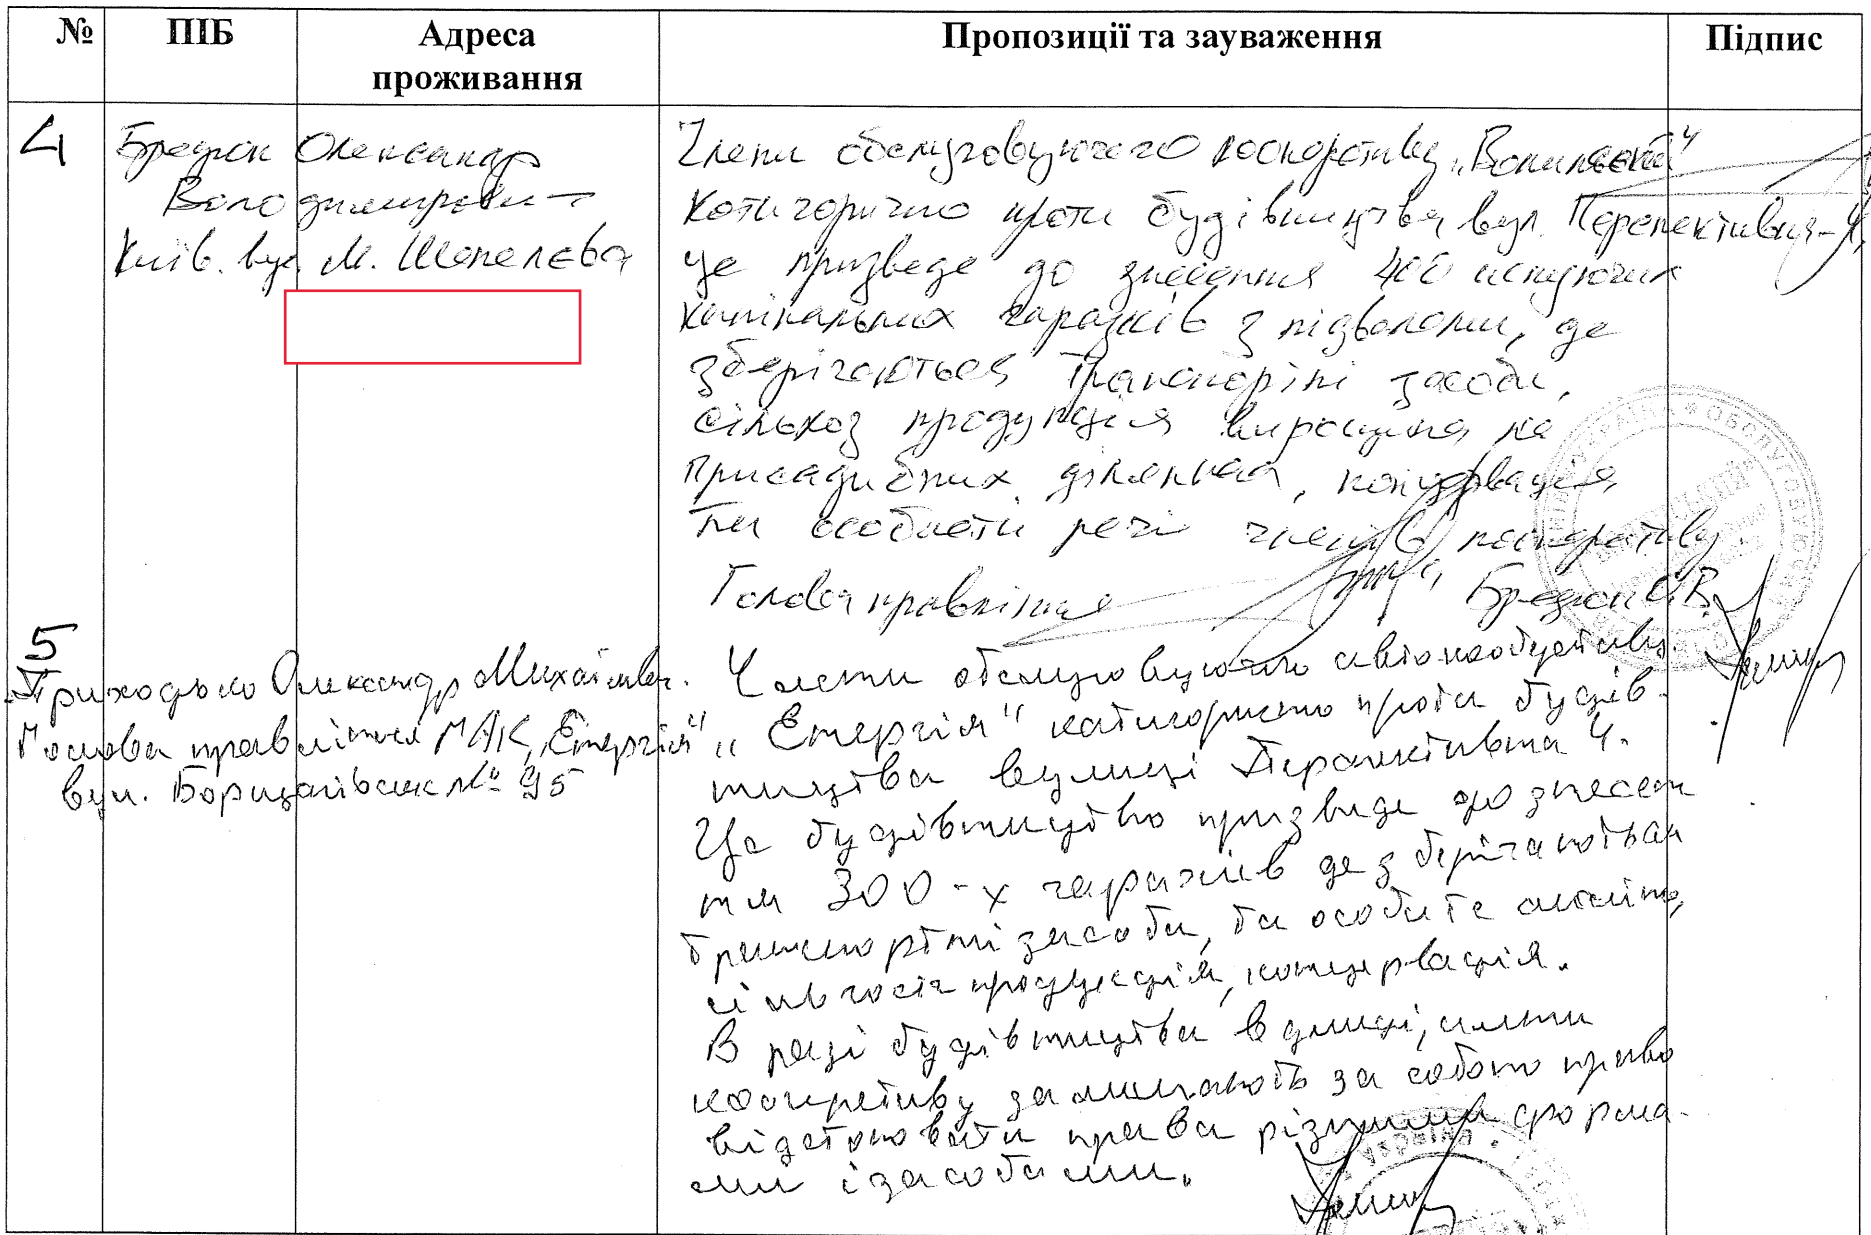 № ПІБ Адреса проживання Пропозиції та зауваження Підпис
4
Бредюк Олександр
Володимирович
Київ. вул. М. Шепелєва
Члени обслуговуючого кооперативу „
Котигорично проти будівництва вул. Перспективна-4,
це призведе до знесення 400 існуючих
капінальних гаражів з підвалами, де
зберігаються транспортні засоби,
сільхоз продукція вирощина на
присадибних ділянках, консервація,
та особисті речі членів кооперативу.
Голова правління Бредюк О.В.
5
Приходько Олександр Михайлович.
Голова правління ГАК „Енергія"
вул. Борщагівська № 95
Члени обслуговуючого автокооперативу
„Енергія" катигорично проти будів-
ництва вулиці Перспективна 4.
Це будівництво призведе до знесен
ня 300-х гаражів де зберігаються
транспортні засоби, та особисте майно,
сільгосп продукція, концервація.
В разі будівництва вулиці, члени
кооперативу залишають за собою право
відстоювати права різними форма-
ми і засобами.
УКРАЇНА
УКРАЇНА